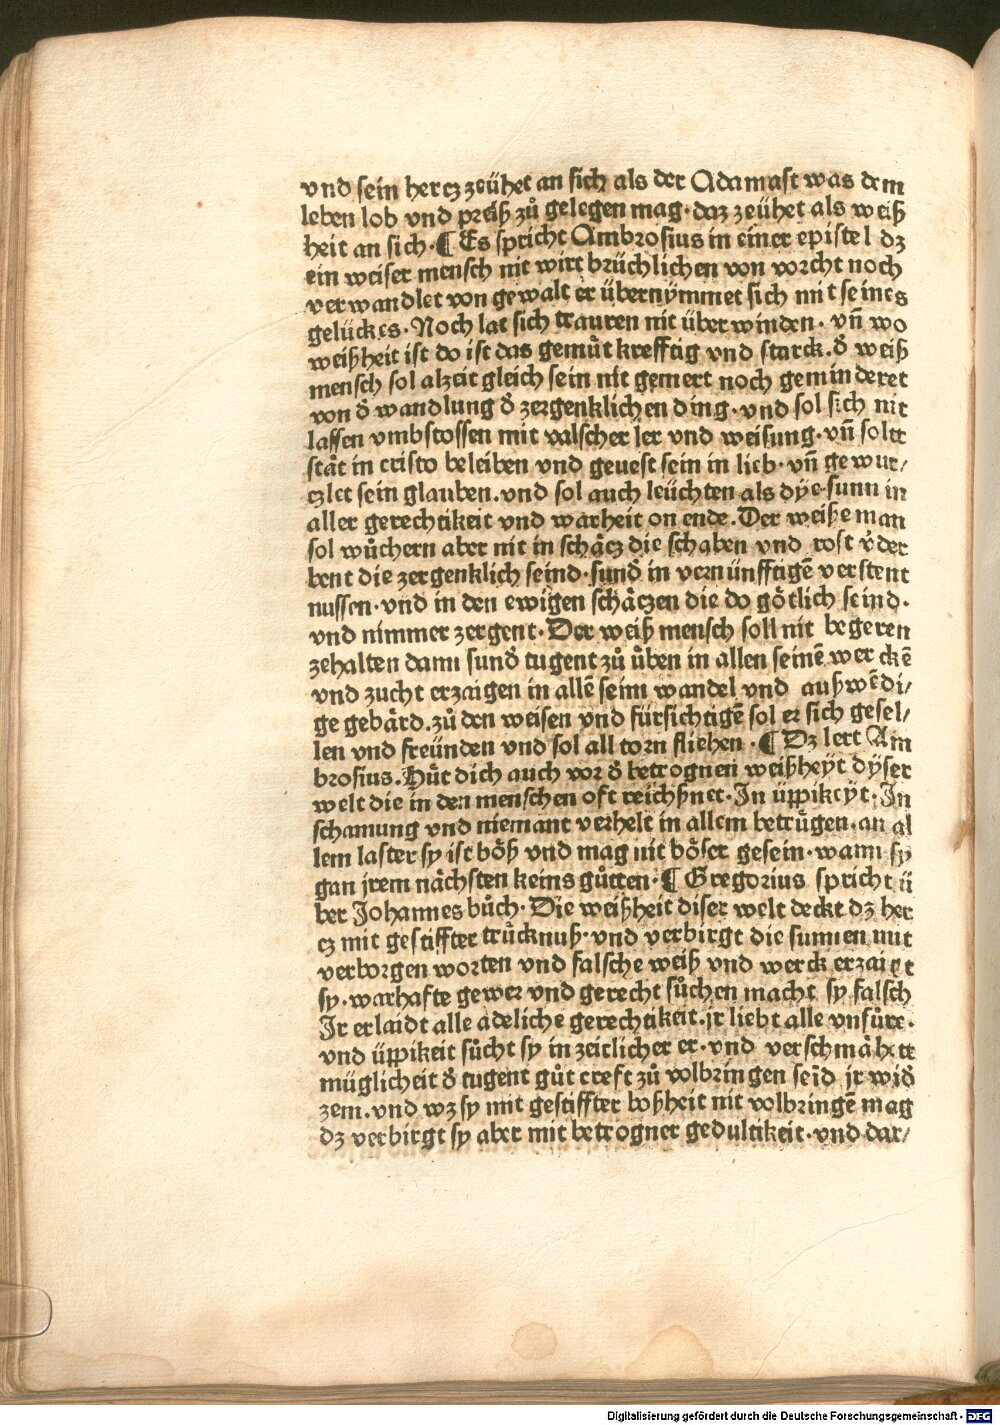 vnd sein hercz zeühet an sich als der Adamast was dem
leben lob vnd preiß zů gelegen mag· daz zeühet als weiß
heit an sich·¶ Es spricht Ambrosius in einer epistel dz
ein weiser mensch nit wirt brüchlichen von vorcht noch
verwandlet von gewalt er übernymmet sich mit seines
gelückes· Noch lat sich trauren nit überwinden· vn̄ wo
weißheit ist do ist das gemüt krefftig vnd starck. ď weiß
mensch sol alzeit gleich sein nit gemert noch geminderet
von ď wandlung ď zergenklichen ding· vnd sol sich nit
lassen vmbstossen mit valscher ler vnd weisung· vn̄ soltt
stät in cristo beleiben vnd geuest sein in lieb· vn̄ gewur/
czlet sein glauben. vnd sol auch leüchten als dÿe sunn in
aller gerechtikeit vnd warheit on ende. Der weiße man
sol wůchern aber nit in schäcz die schaben vnd rost v̄der
bent die zergenklich seind· sunď in vernünfftigē verstent
nussen· vnd in den ewigen schäczen die do götlich seind.
vnd nimmer zergent· Der weiß mensch soll nit begeren
zehalten dann sunď tugent zů üben in allen seinē werckē
vnd zucht erzaigen in allē seim wandel vnd außwēdi/
ge gebärd. zů den weisen vnd fürsichtigē sol er sich gesel/
len vnd freünden vnd sol all torn fliehen·¶ Dz lert Am
brosius. Hüt dich auch vor ď betrognen weißheÿt dÿser
welt die in den menschen oft reichßnet· In üppikeÿt· In
schamung vnd niemant verhelt in allem betrügen· an al
lem laster sy ist böß vnd mag nit böser gesein· wann sy
gan jrem nächsten keins gůtten·¶ Gregorius spricht ü
ber Johannes bůch· Die weißheit diser welt deckt dz her
cz mit gestiffter trücknuß· vnd verbirgt die sunnen mit
verborgen worten vnd falsche weiß vnd werck erzaiget
sy· warhafte gewer vnd gerecht sůchen macht sy falsch
Ir erlaidt alle adeliche gerechtikeit. jr liebt alle vnfůre·
vnd üppikeit sůcht sy in zeitlicher er· vnd verschmähtt
müglicheit ď tugent gůt creft zů volbringen seīd jr wiď
zem. vnd wz sy mit gestiffter boßheit nit volbringē mag
dz verbirgt sy aber mit betrogner gedultikeit· vnd dar/
Digitalisierung gefördert durch die Deutsche Forschungsgemeinschaft - DFG